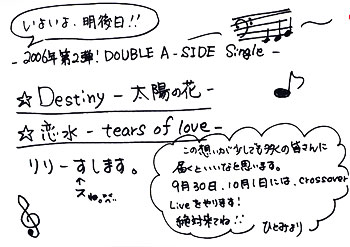 いよいよ、明後日!!
- 2006年第2弾! DOUBLE A-SIDE Single -
☆ Destiny - 太陽の花 -
☆ 恋水 - tears of love -
リリーすします。
↑
スね。
この想いが少しでも多くの皆さんに
届くといいなと思います。
9月30日、10月1日には、crossover
Liveをやります!
絶対来てね!!
ひとみより